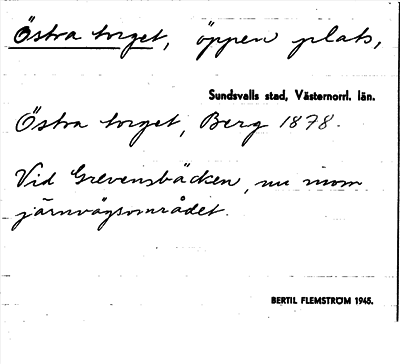 Östra torget, öppen plats,
Sundsvalls stad, Västernorrl. län.
Östra torget, Berg 1878.
Vid Grevensbäcken, nu inom
järnvägsområdet.
BERTIL FLEMSTRÖM 1945.